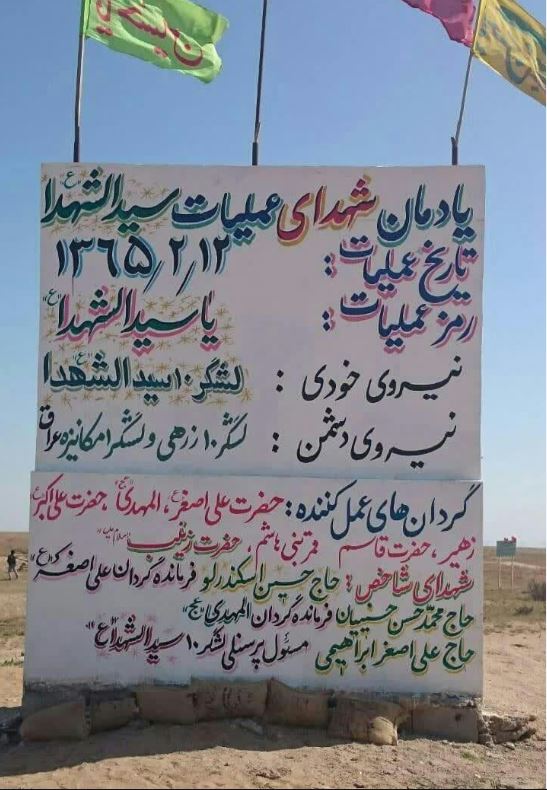 یادمان شهدای عملیات سیدالشهدا "ع"
تاریخ عملیات : ۱۳۶۵/۲/۱۲
رمز عملیات : یا سیدالشهدا "ع"
نیروی خودی : لشگر ۱۰ سیدالشهدا "ع"
نیروی دشمن : لشگر ۱۰ زرهی و لشگر ۱ مکانیزه عراق
گردان های عمل کننده : حضرت علی اصغر "ع" ، المهدی "عج" ، حضرت علی اکبر "ع"
زهیر ، حضرت قاسم قمر بنی هاشم ، حضرت زینب "سلام علیها"
شهدای شاخص : حاج حسین اسکندرلو فرمانده گردان علی اصغر "ع"
حاج محمد حسن حسنیان فرمانده گردان المهدی "عج"
حاج علی اصغر ابراهیمی مسئول پرسنلی لشگر ۱۰ سیدالشهدا "ع"